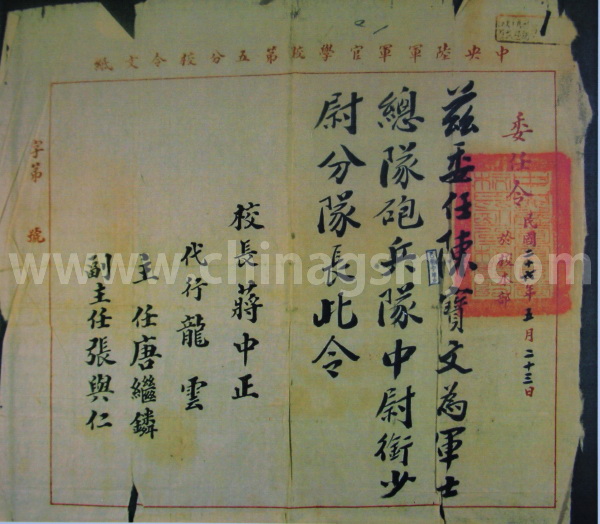 中央陸軍軍官學校第五分校令文紙
委任令
民國二十七年五月二十三日
於 部
茲委任陳寶文為軍士
總隊砲兵隊中尉銜少
尉分隊長此令
校長蔣中正
代行龍雲
主任唐繼鏻
副主任張與仁
字第 號
www.chinagsmy.com